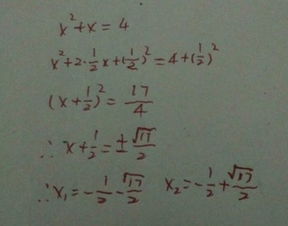 x²+x=4
x²+2·\frac{1}{2}x+(\frac{1}{2})²=4+(\frac{1}{2})²
(x+\frac{1}{2})²=\frac{17}{4}
∴x+\frac{1}{2}=±\frac{\sqrt{17}}{2}
∴x₁=-\frac{1}{2}-\frac{\sqrt{17}}{2} x₂=-\frac{1}{2}+\frac{\sqrt{17}}{2}